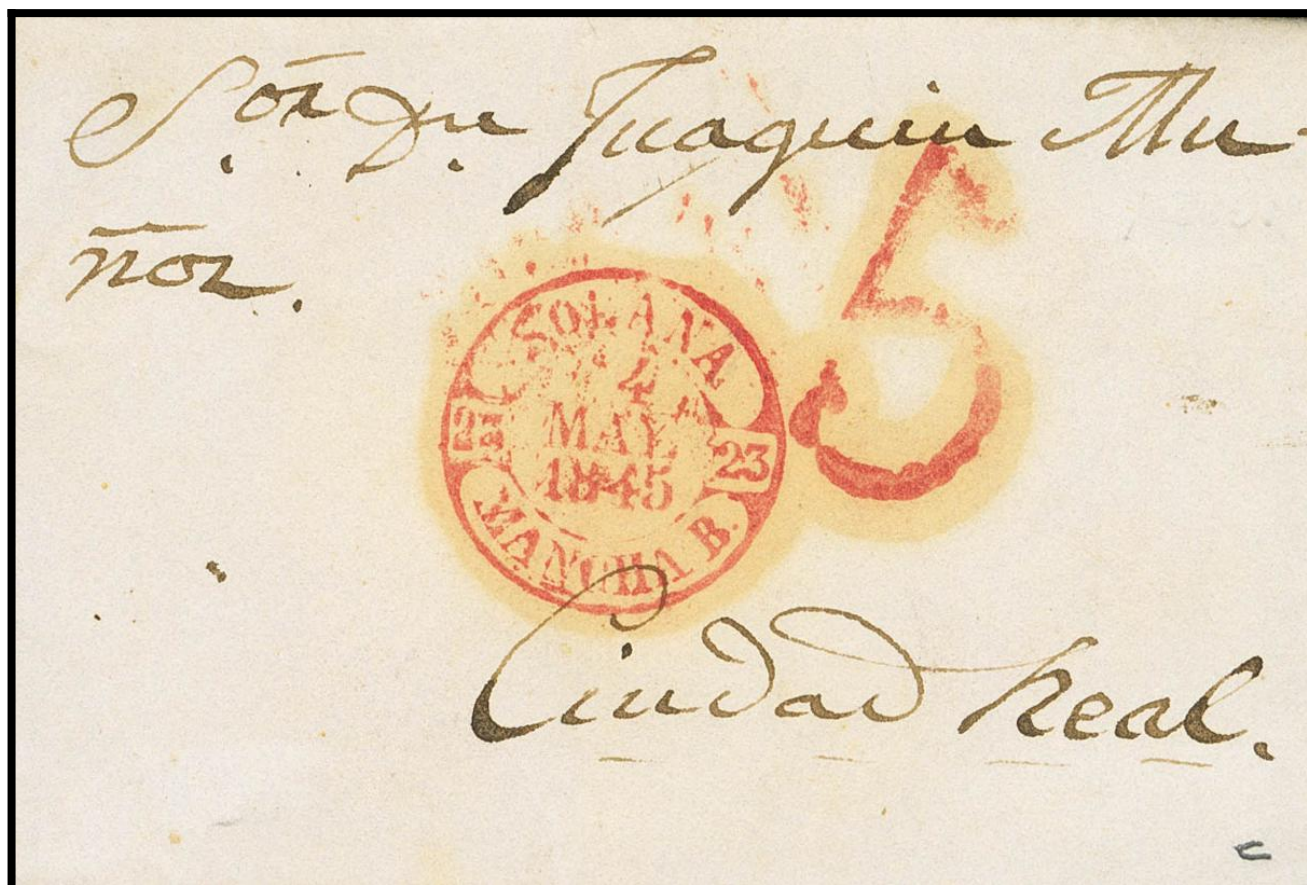 S.ᵒʳ Dn. Juaquin Mu-
ñoz.
5
SOLANA
4
MAY.
1845
23
MANCHA B.
Ciudad Real.